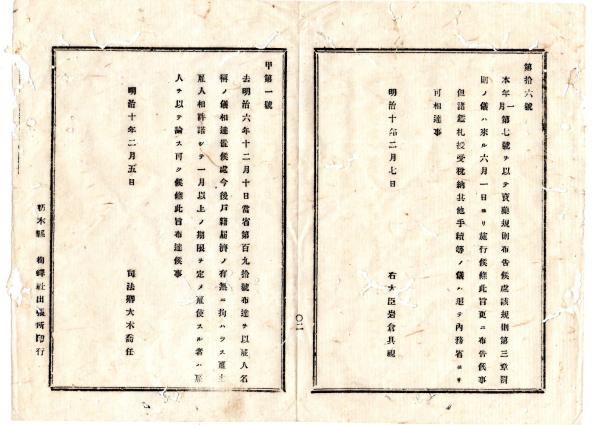 第拾六號
本年一月第七號ヲ以テ賣藥規則布告候處該規則第三章罰
則ノ儀ハ來ル六月一日ヨリ施行候條此旨更ニ布告候事
但諸鑑札授受稅納其他手續等ノ儀ハ追テ內務省ヨリ
可相達事
明治十年二月七日
右大臣岩倉具視
〇二
甲第一號
去明治六年十二月十日當省第百九拾號布達ヲ以雇人名
稱ノ儀相達置候處今後戶籍屆濟ノ有無ニ拘ハラス雇主
雇人相許諾シテ一月以上ノ期限ヲ定メ雇使スル者ハ雇
人ヲ以テ論ス可ク候條此旨布達候事
明治十年二月五日
司法卿大木喬任
栃木縣 社出張所印行